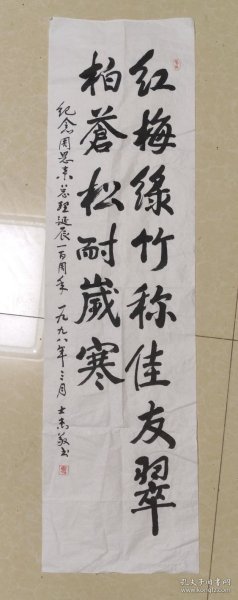 红梅绿竹称佳友翠
柏苍松耐岁寒
纪念周恩来总理诞辰一百周年 一九九八年三月